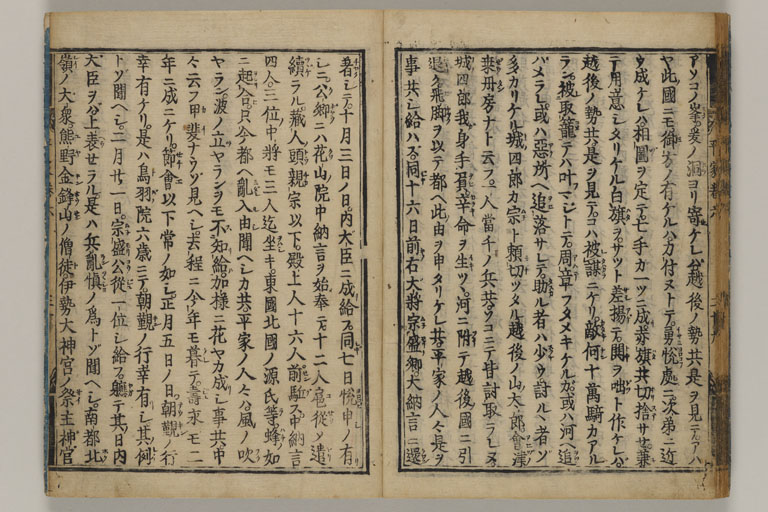 アソコノ峯爰ノ洞ヨリ寄ケレハ越後ノ勢共是ヲ見テアハ
ヤ此國ニモ御方ノ有ケルハカ付ヌトテ勇悦處ニ次第ニ近
ウ成ケレハ相圖ヲ定テ七手カ一ツニ成赤旗共切捨サセ兼
テ用意シタリケル白旗ヲサツト差揚テ鬨ヲ咄ト作ケレハ
越後ノ勢共是ヲ見テコハ被謀ニケリ敵何十萬騎カアル
ラン被取籠テハ叶マシトテ周章フタメキケルカ或ハ河ヘ追
ハメラレ或ハ惡所ヘ追落サレテ助ル者ハ少ウ討ルヽ者ゾ
多カリケル城四郎カ宗ト頼切ツタル越後ノ山ノ太郎會津ノ
乗丹房ナト云フ一人當千ノ兵共ソコニテ皆討取ラレヌ
城四郎我身手負辛命ヲ生ツヽ河ニ附テ越後國ニ引
退ク飛脚ヲ以テ都ヘ此由ヲ申タリケレ共平家ノ人々是ヲ
事共シ給ハス同十六日前右大將宗盛卿大納言ニ還
着シテ十月三日ノ日内大臣ニ成給フ同七日悦申ノ有
シニ公卿ニハ花山院中納言ヲ始奉テ十二人扈從ソ遣
續ラル藏人頭親宗以下殿上人十六人前駈ス中納言
四人三位中將モ三人迄坐キ東國北國ノ源氏等蜂ノ如
ニ起合只今都ヘ亂入由聞ヘシカ共平家ノ人々ハ風ノ吹
ヤラン波ノ立ヤランヲモ不知給加樣ニ花ヤカ成シ事共中
々云フ甲斐ナウゾ見ヘシ去程ニ今年モ暮テ壽永モ二
年ニ成ニケリ節會以下常ノ如シ正月五日ノ日朝覲ノ行
幸有ケリ是ハ鳥羽院六歳ニテ朝覲ノ行幸有シ其例
トゾ聞ヘシ二月廿一日宗盛公從一位シ給フ軈テ其日内
大臣ヲハ上表セラル是ハ兵亂愼ノ爲トゾ聞ヘシ南都北
嶺ノ大衆熊野金峰山ノ僧徒伊勢大神宮ノ祭主神官